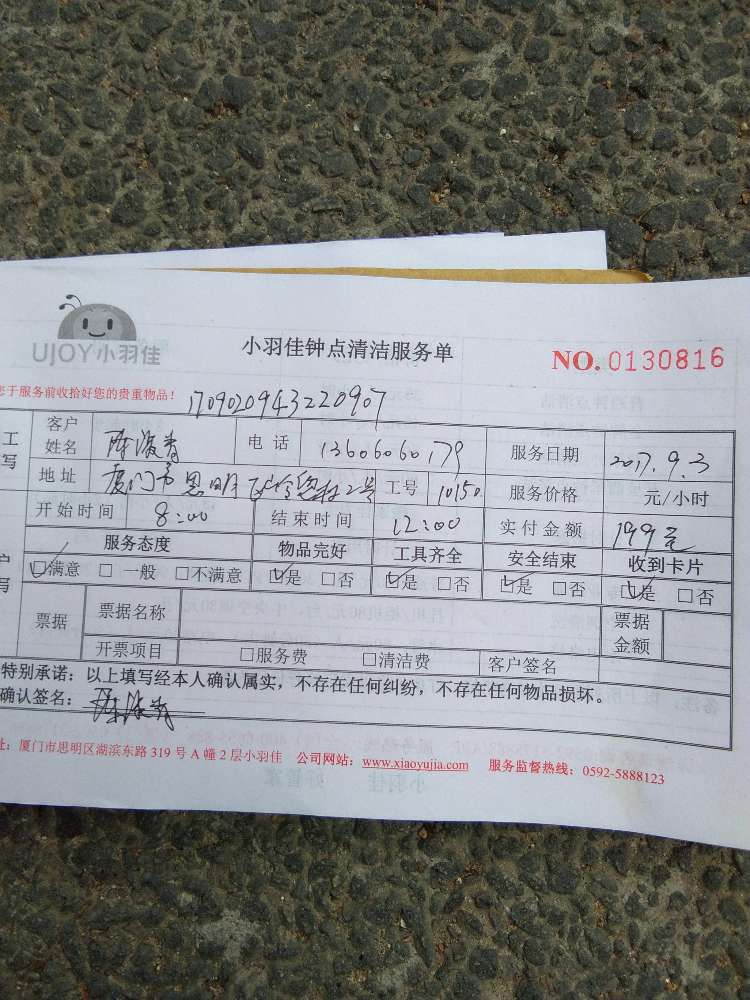 UJOY小羽佳
小羽佳钟点清洁服务单
NO. 0130816
您于服务前收拾好您的贵重物品！
1709020943220907
工 客户姓名 陈 电话 13606060179 服务日期 2017.9.3
写 地址 厦门市思明 2号 工号 10150 服务价格 元/小时
开始时间 8:00 结束时间 12:00 实付金额 199元
服务态度 物品完好 工具齐全 安全结束 收到卡片
户 ☑满意 □一般 □不满意 ☑是 □否 ☑是 □否 ☑是 □否 ☑是 □否
写 票据 票据名称 票据金额
开票项目 □服务费 □清洁费 客户签名
特别承诺：以上填写经本人确认属实，不存在任何纠纷，不存在任何物品损坏。
确认签名：陈
址：厦门市思明区湖滨东路 319 号 A 幢 2 层小羽佳 公司网站：www.xiaoyujia.com 服务监督热线：0592-5888123